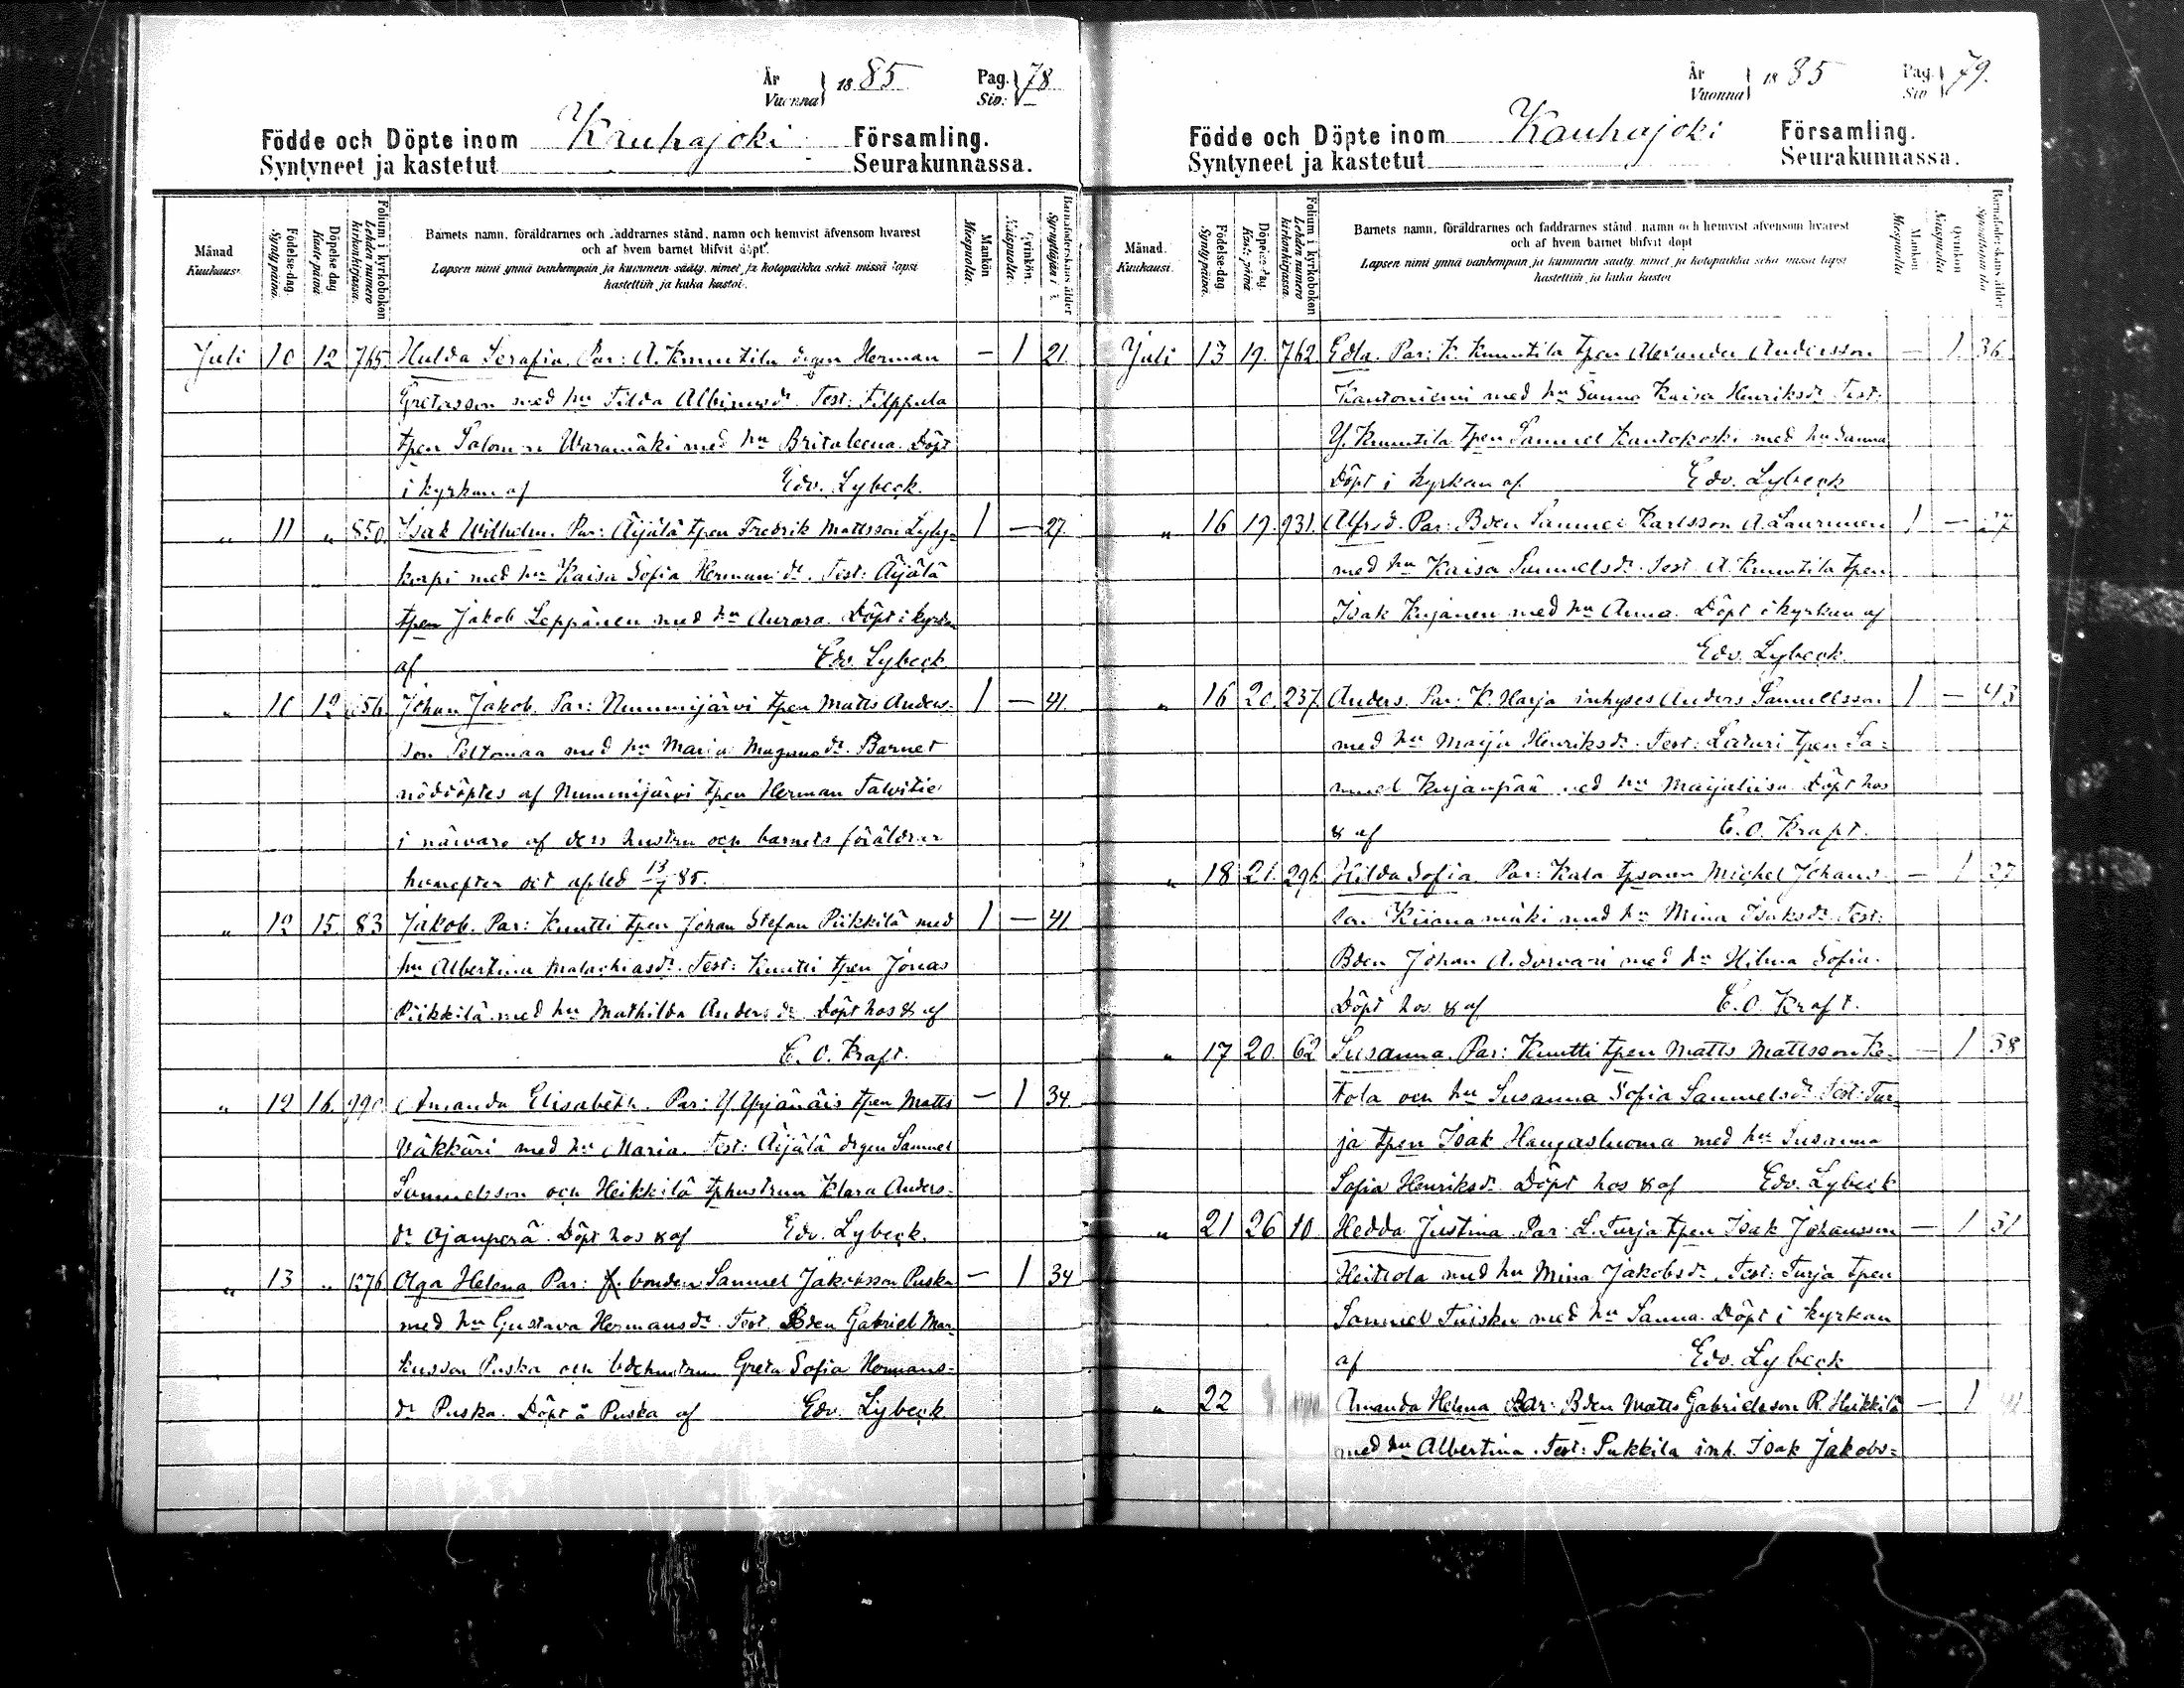 År Vuonna 1885 Pag. Siv: 78
Födde och Döpte inom Kauhajoki Församling.
Syntyneet ja kastetut Seurakunnassa.
Månad Kuukausi.
Födelse-dag. Synty päivä.
Döpelse dag Kaste päivä
Folium i kyrkoboken Lehden numero kirkonkirjassa.
Barnets namn, föräldrarnes och faddrarnes stånd, namn och hemvist äfvensom hvarest
och af hvem barnet blifvit döpt.
Lapsen nimi ynnä vanhempain ja kummein sääty, nimet ja kotopaikka sekä missä lapsi
kastettiin ja kuka kastoi.
Mankön Miespuolia.
Qvinkön. Naispuolia.
Juli 10 12 765. Hulda Serafia. Par: A. Knuutila drgen Herman — 1 21.
Gretasson med hu Tilda Albinusdr. Test: Filppula
tpen Salomon Waramäki med hu Britaleena. Döpt
i kyrkan af Edv. Lybeck.
" 11 " 850. Isak Wilhelm. Par: Äijälä tpen Fredrik Mattsson Lyly- 1 — 27.
korpi med hu Kaisa Sofia Hermansdr. Test: Äijälä
tpen Jakob Leppänen med hu Aurora. Döpt i kyrkan
af Edv. Lybeck
" Johan Jakob. Par: Nummijärvi tpen Matts Anders- 1 — 41.
son Peltomaa med hu Maria Magnusdr. Barnet
nöddöptes af Nummijärvi tpen Herman Talvitie
i närvaro af dess hustru och barnets föräldrar
hvarefter det afled 13/7 85.
" 12 15. 83 Jakob. Par: Knutti tpen Johan Stefan Piikkilä med 1 — 41.
hu Albertina Malachiasdr. Test: Knutti tpen Jonas
Piikkilä med hu Mathilda Andersdr. Döpt hos & af
E. O. Kraft.
" 12 16. 990 Amanda Elisabeth. Par: Y. Yrjänäis tpen Matts — 1 34.
Wäkkäri med hu Maria. Test: Äijälä drgen Samuel
Samuelsson och Heikkilä tphustrun Klara Anders-
dr Ojanperä. Döpt hos & af Edv. Lybeck.
" 13 " 1276 Olga Helena Par: bonden Samuel Jakobsson Puska — 1 34
med hu Gustava Hermansdr. Test. Bden Gabriel Mar-
kusson Puska och bdehustrun Greta Sofia Hermans-
dr Puska. Döpt å Puska af Edv. Lybeck
År Vuonna 1885 Pag. Siv 79.
Födde och Döpte inom Kauhajoki Församling.
Syntyneet ja kastetut Seurakunnassa.
Månad. Kuukausi.
Födelse-dag Synty päivä.
Döpelse-dag. Kaste päivä
Folium i kyrkoboken Lehden numero kirkonkirjassa.
Barnets namn, föräldrarnes och faddrarnes stånd, namn och hemvist äfvensom hvarest
och af hvem barnet blifvit döpt
Lapsen nimi ynnä vanhempain ja kummein sääty, nimet ja kotopaikka sekä missä lapsi
kastettiin ja kuka kastoi
Mankön Miespuolia
Qvinkön Naispuolia
Juli 13 19. 762 Edla. Par: K. Knuutila tpen Alexander Andersson — 1. 36.
Kantoniemi med hu Sanna Kaisa Henriksdr. Test:
Y. Knuutila tpen Samuel Kantokoski med hu Sanna
Döpt i kyrkan af Edv. Lybeck
" 16 19. 931. Alfred. Par: Bden Samuel Karlsson A. Laurinen 1 — 27
med hu Kaisa Samuelsdr. Test. A. Knuutila tpen
Isak Kujanen med hu Anna. Döpt i kyrkan af
Edv. Lybeck
" 16 20. 237 Anders. Par: K. Harja inhyses Anders Samuelsson 1 — 43
med hu Maija Henriksdr. Test: tpen Sa-
muel Kujanpää med hu Maijaliisa. Döpt hos
& af E. O. Kraft.
" 18 21. 296 Hilda Sofia. Par: Kala tpsonen Michel Johans- — 1 27
son med hu Mina Isaksdr. Test:
Bden Johan A. Sorvari med hu Hilma Sofia.
Döpt hos & af E. O. Kraft.
" 17 20 62 Susanna. Par: Knutti tpen Matts Mattsson Ke- — 1 38
tola och hu Susanna Sofia Samuelsdr. Test: Tur-
ja tpen Isak Hangasluoma med hu Susanna
Sofia Henriksdr. Döpt hos & af Edv. Lybeck
" 21 26 10 Hedda Justina. Par: L. Turja tpen Isak Johansson — 1 31
Heittola med hu Mina Jakobsdr. Test: Turja tpen
Samuel Tuisku med hu Sanna. Döpt i kyrkan
af Edv. Lybeck
" 22 Amanda Helena Par: Bden Matts Gabrielsson R. Heikkilä — 1
med hu Albertina. Test: Pukkila inh. Isak Jakobs-